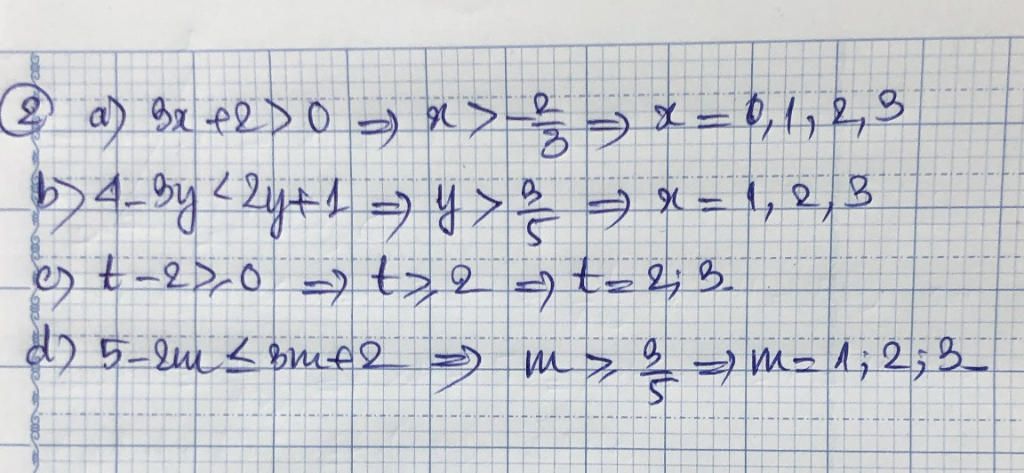 ② a) 3x+2>0 ⇒ x>-2/3 ⇒ x=0,1,2,3
b) 4-3y<2y+1 ⇒ y>3/5 ⇒ x=1,2,3
c) t-2≥0 ⇒ t≥2 ⇒ t=2;3
d) 5-2m≤3m+2 ⇒ m≥3/5 ⇒ m=1;2;3